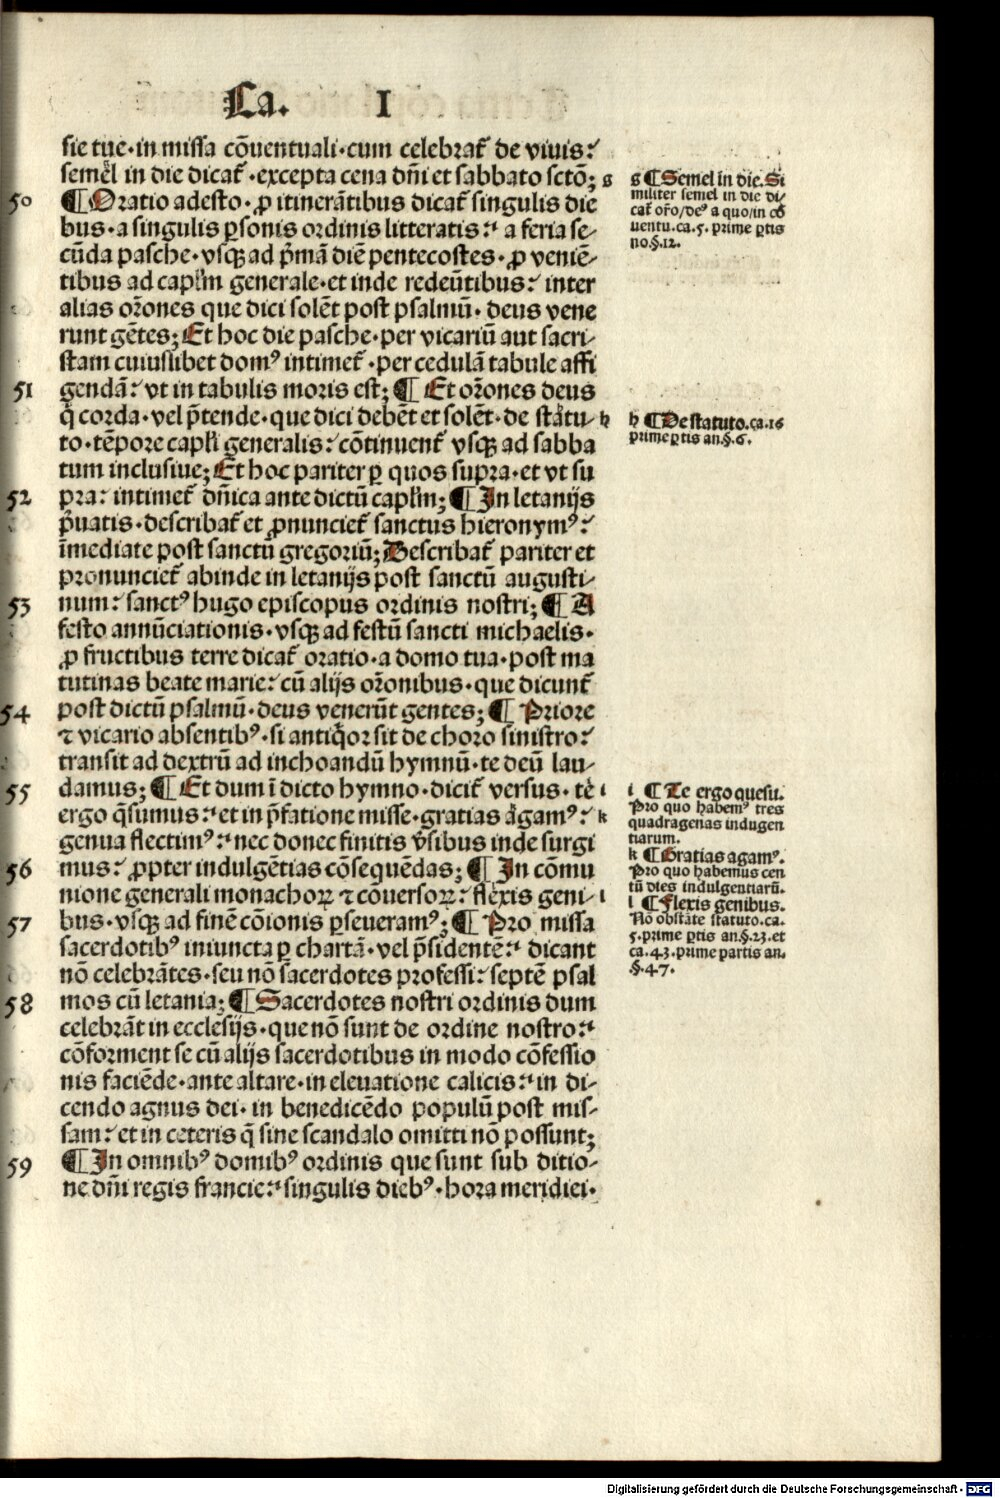 Ca. I
sie tue·in missa cōuentuali·cum celebrat̄ de viuis:
semel in die dicat̄·excepta cena dñi et sabbato sctō; g
50 ¶Oratio adesto·ꝓ itinerātibus dicat̄ singulis die
bus·a singulis ꝑsonis ordinis litteratis: a feria se-
cūda pasche·vsqꝫ ad pˀmā diē pentecostes·ꝓ veniē-
tibus ad caplm̄ generale·et inde redeūtibus: inter
alias or̄ones que dici solēt post psalmū·deus vene
runt gētes; Et hoc die pasche·per vicariū aut sacri-
stam cuiuslibet domꝰ intimet̄·per cedulā tabule affi
51 gendā: vt in tabulis moris est; ¶ Et or̄ones deus
q̄ corda·vel p̄tende·que dici debēt et solēt·de statu- h
to·tēpore capli̅ generalis: cōtinuent̄ vsqꝫ ad sabba
tum inclusiue; Et hoc pariter ꝑ quos supra·et vt su
52 pra: intimet̄ dñica ante dictū caplm̄; ¶In letanijs
p̄uatis·describat̄ et ꝓnunciet̄ sanctus hieronymꝰ:
īmediate post sanctū gregoriū; Describat̄ pariter et
pronunciet̄ abinde in letanijs post sanctū augusti-
53 num: sanctꝰ hugo episcopus ordinis nostri; ¶ A
festo annūciationis·vsqꝫ ad festū sancti michaelis·
ꝓ fructibus terre dicat̄ oratio·a domo tua·post ma
tutinas beate marie: cū alijs or̄onibus·que dicunt̄
54 post dictū psalmū·deus venerūt gentes; ¶ Priore
⁊ vicario absentibꝰ·si antiqͥor sit de choro sinistro:
transit ad dextrū ad inchoandū hymnū·te deū lau-
55 damus; ¶ Et dum ī dicto hymno·dicit̄ versus·te i
ergo q̄sumus: et in p̄fatione misse·gratias agamꝰ: k
genua flectimꝰ: nec donec finitis v̄sibus inde surgi
56 mus: ꝓpter indulgētias cōsequēdas; ¶ In cōmu
nione generali monachoꝝ ⁊ cōuersoꝝ: flexis geni- l
57 bus·vsqꝫ ad finē cōionis ꝑseueramꝰ; ¶ Pro missa
sacerdotibꝰ iniuncta ꝑ chartā·vel p̄sidentē: dicant
nō celebrātes·seu nō sacerdotes professi: septē psal
58 mos cū letania; ¶ Sacerdotes nostri ordinis dum
celebrāt in ecclesijs·que nō sunt de ordine nostro:
cōforment se cū alijs sacerdotibus in modo cōfessio
nis faciēde·ante altare·in eleuatione calicis: in di-
cendo agnus dei·in benedicēdo populū post mis-
sam: et in ceteris q̄ sine scandalo omitti nō possunt;
59 ¶In omnibꝰ domibꝰ ordinis que sunt sub ditio-
ne dñi regis francie: singulis diebꝰ·hora meridiei·
g ¶Semel in die. Si
militer semel in die di-
cat̄ or̄o/deꝰ a quo/in cō
uentu.ca.5. prime ꝑtis
no.§.12.
h ¶De statuto.ca.16
prime ꝑtis an.§.6.
i ¶ Te ergo quesu.
Pro quo habemꝰ tres
quadragenas indugen
tiarum.
k ¶Gratias agamꝰ.
Pro quo habemus cen
tū dies indulgentiarū.
l ¶Flexis genibus.
Nō obstāte statuto.ca.
5.prime ꝑtis an.§.23.et
ca.43.prime partis an.
§.47.
Digitalisierung gefördert durch die Deutsche Forschungsgemeinschaft - DFG